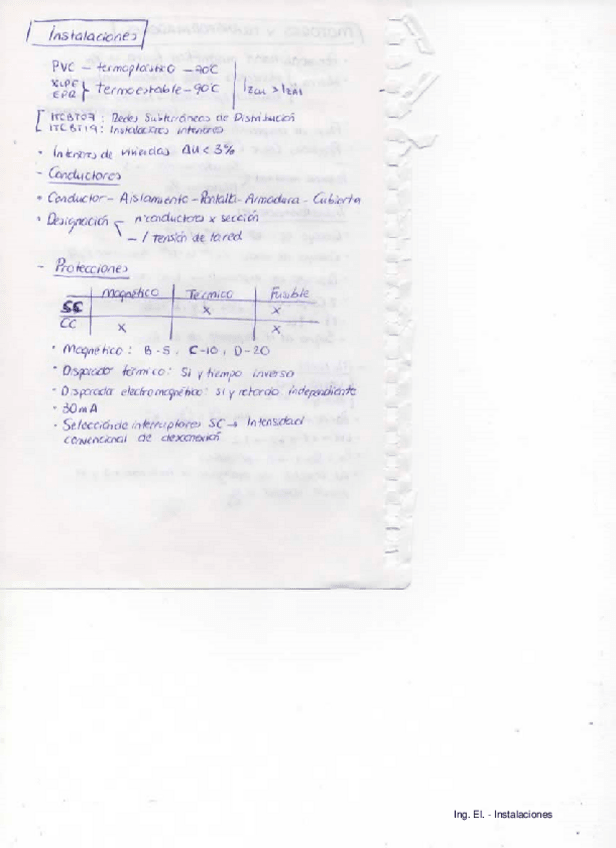 Instalaciones
PVC - termoplástico - 70ºC
XLPE
EPR } termoestable - 90ºC | IzCu > IzAl
[ ITCBT07: Redes Subterráneas de Distribución
ITCBT19: Instalaciones interiores
• Interiores de viviendas ΔU < 3%
- Conductores
• Conductor - Aislamiento - Pantalla - Armadura - Cubierta
• Designación - nºconductores x sección
- / Tensión de la red
- Protecciones
Magnético | Térmico | Fusible
SC | | x | x
CC | x | | x
• Magnético: B-5, C-10, D-20
• Disparador térmico: Sí y tiempo inverso
• Disparador electromagnético: sí y retardo independiente
• 30mA
• Selección de interruptores SC → Intensidad
convencional de desconexión
Ing. El. - Instalaciones